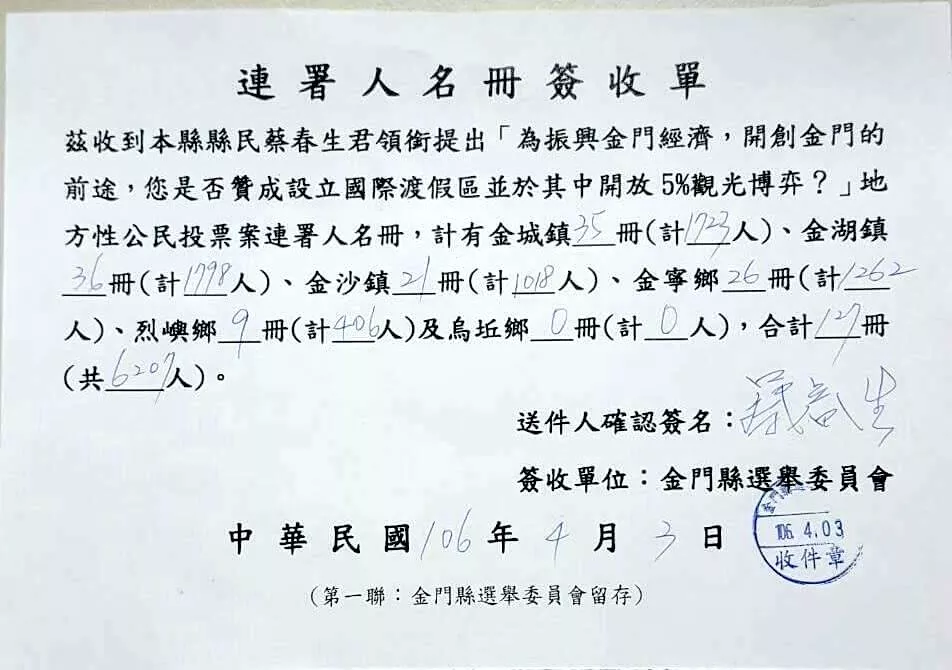 連署人名冊簽收單
茲收到本縣縣民蔡春生君領銜提出「為振興金門經濟，開創金門的
前途，您是否贊成設立國際渡假區並於其中開放5%觀光博弈？」地
方性公民投票案連署人名冊，計有金城鎮35冊(計1723人)、金湖鎮
36冊(計1798人)、金沙鎮21冊(計1018人)、金寧鄉26冊(計1262
人)、烈嶼鄉9冊(計406人)及烏坵鄉0冊(計0人)，合計127冊
(共6207人)。
送件人確認簽名：蔡春生
簽收單位：金門縣選舉委員會
中華民國106年4月3日
106.4.03
收件章
(第一聯：金門縣選舉委員會留存)